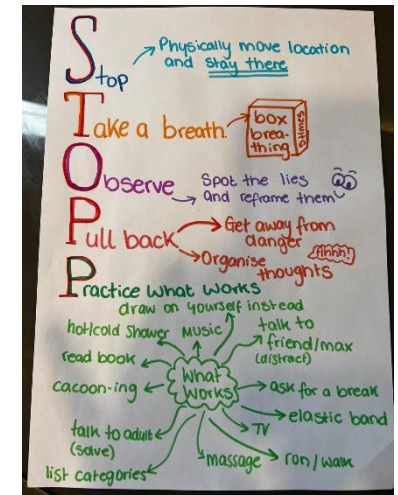 Stop
Physically move location
and stay there
Take a breath.
box
brea-
thing
5 times
Observe
Spot the lies
and reframe them
Pull back
Get away from
danger
Organise
thoughts
Ahhh!
Practice what works
draw on yourself instead
hot/cold shower
MUSIC
talk to
friend/max
(distract)
read book
cacoon-ing
What
Works
ask for a break
elastic band
TV
run/walk
massage
talk to adult
(solve)
list categories